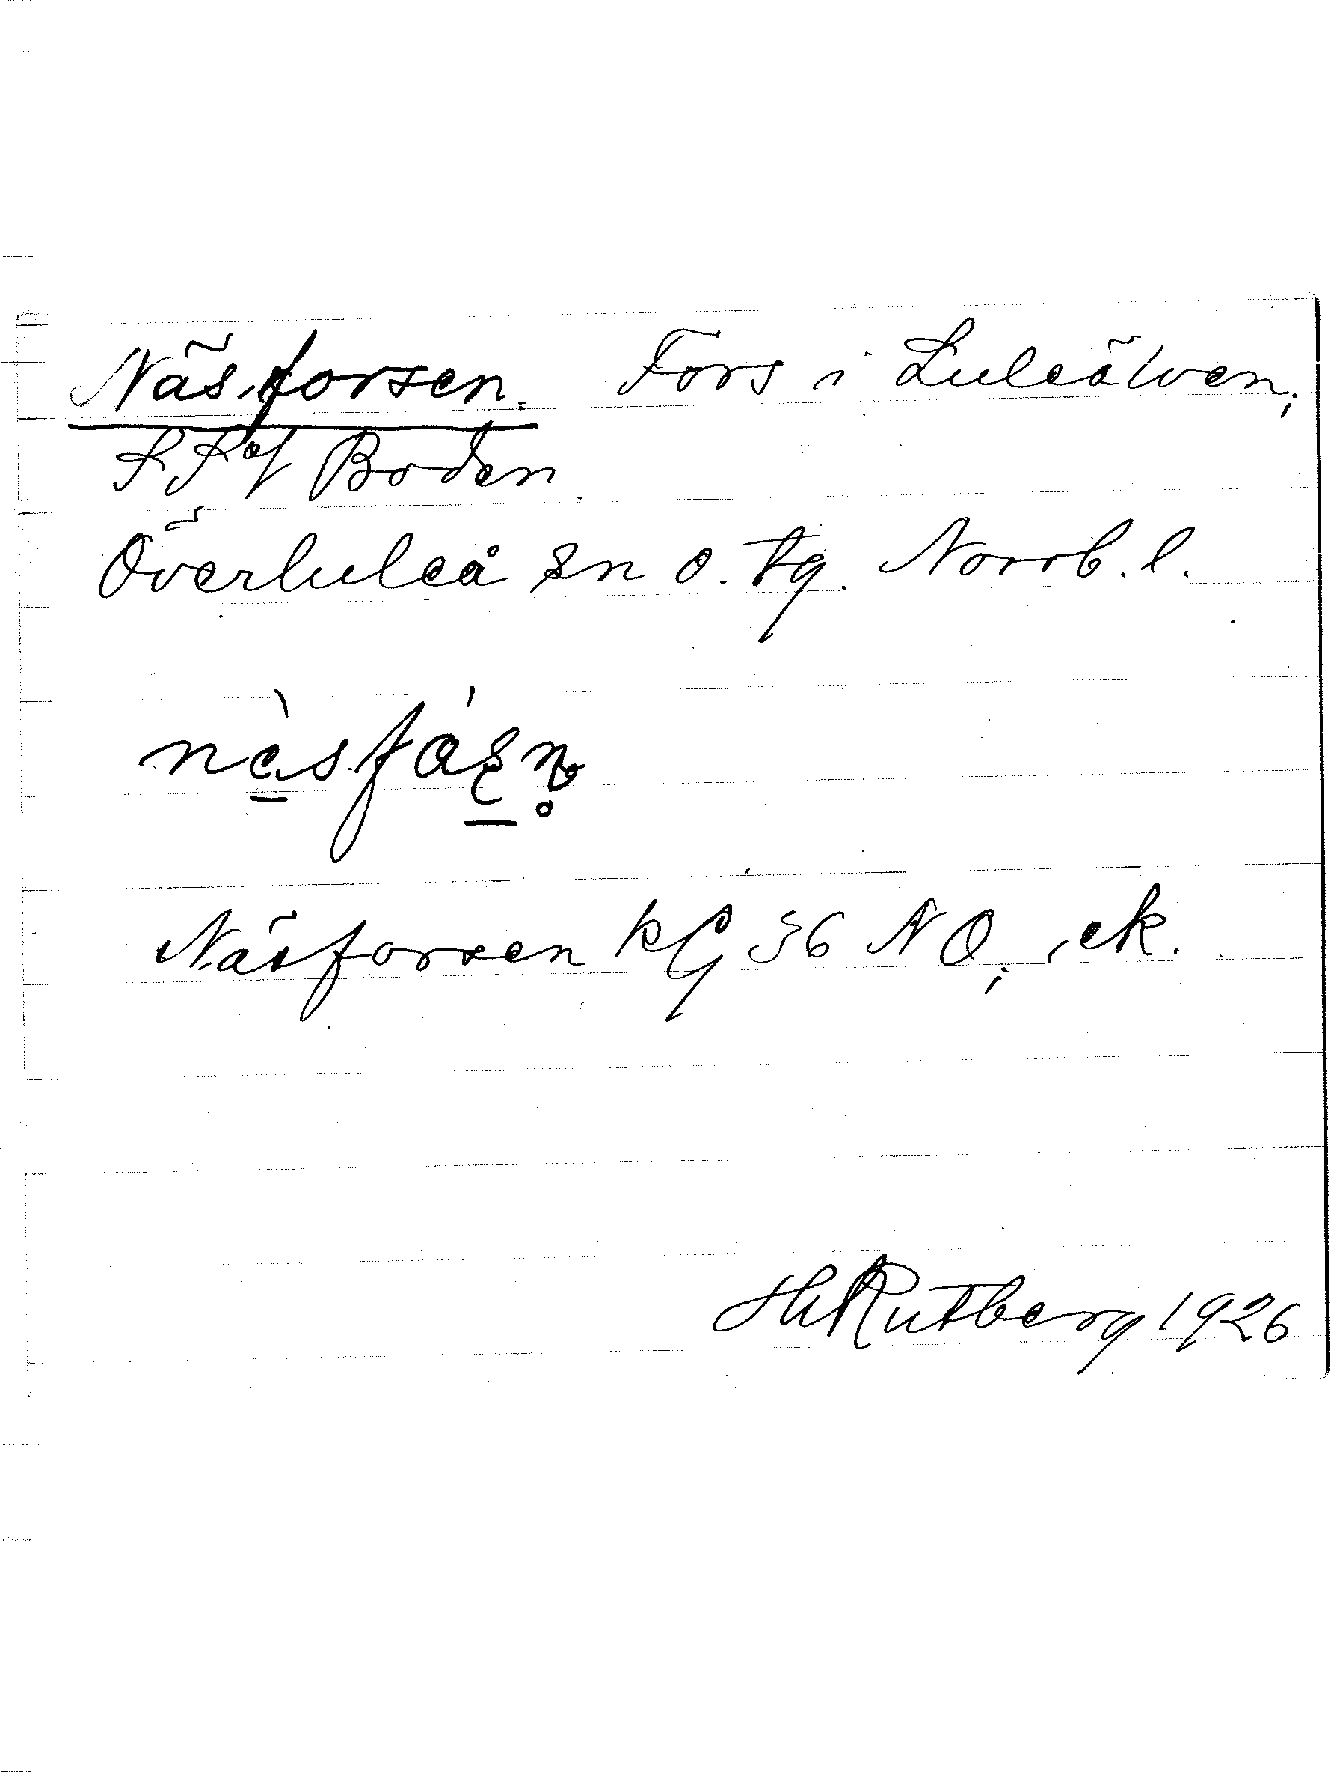 Näsforsen. Fors i Luleälven;
SSV Boden
Överluleå sn o. tg. Norrb. l.
Näsforsen kG 36 NO; ek.
H Rutberg 1926